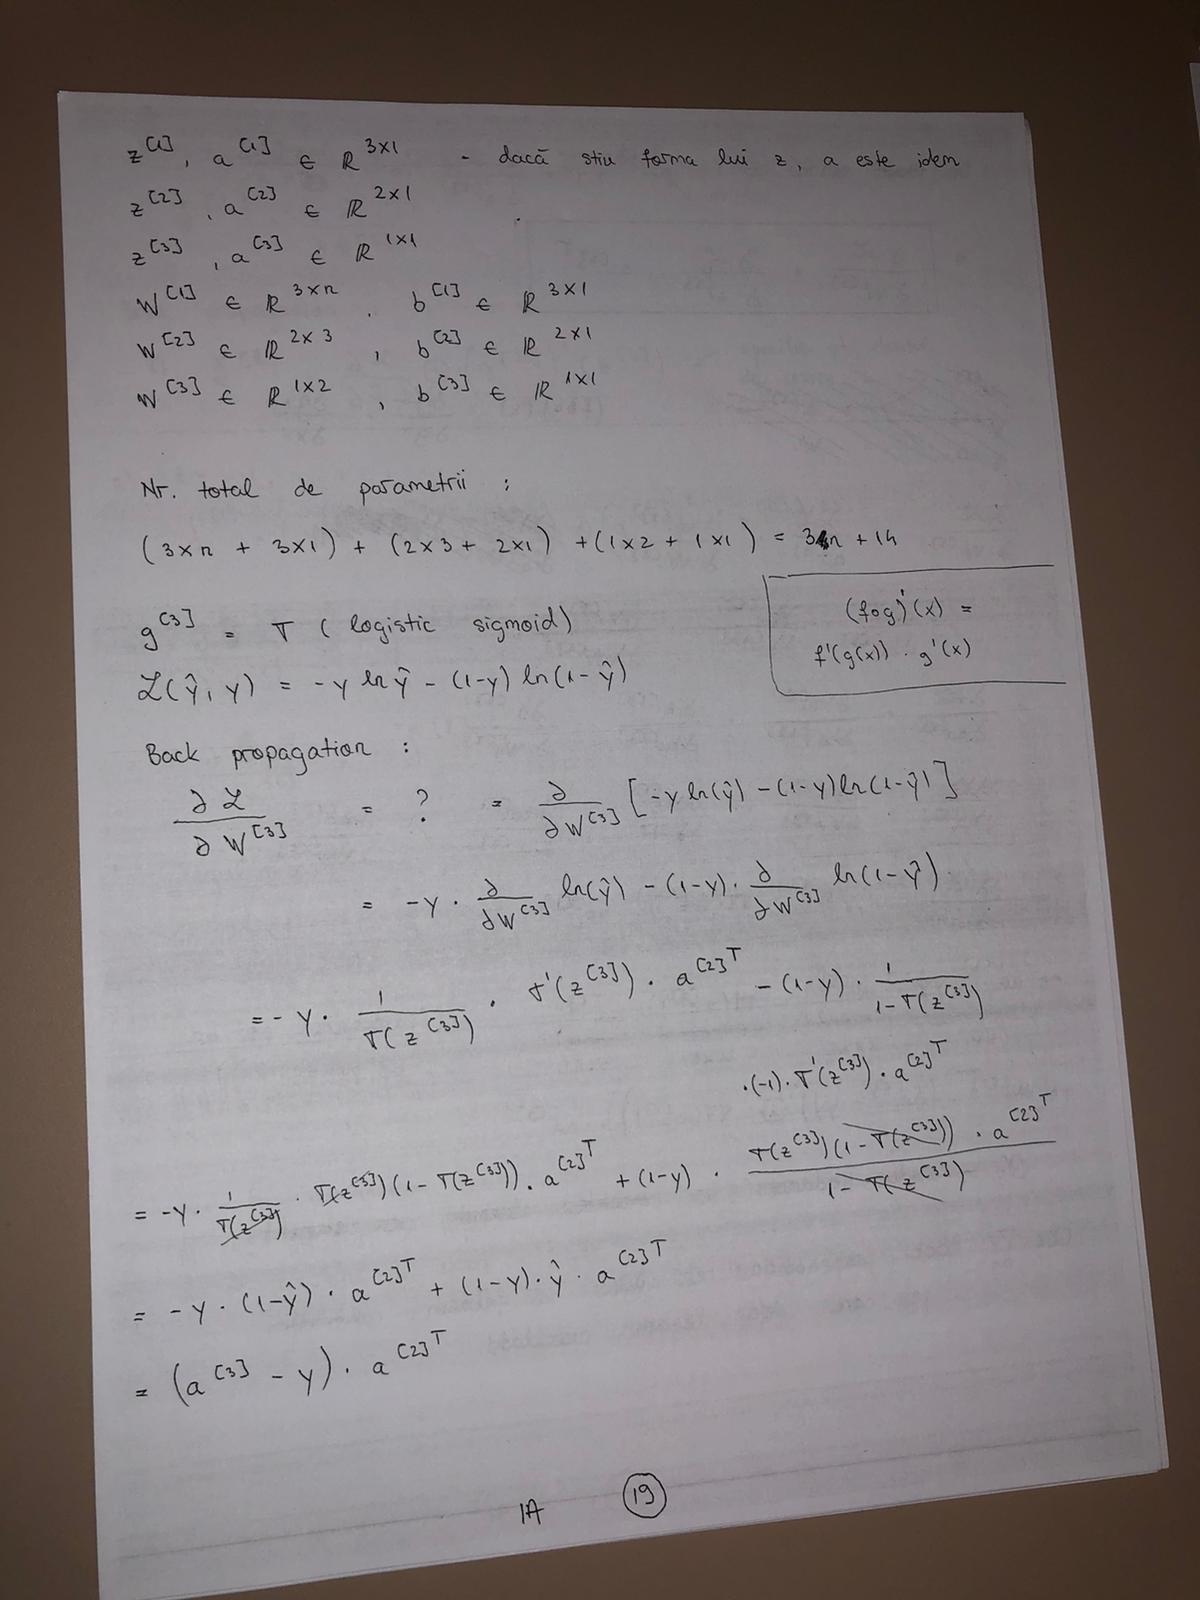 z^[1], a^[1] ∈ ℝ^3×1 - dacă stiu forma lui z, a este idem
z^[2], a^[2] ∈ ℝ^2×1
z^[3], a^[3] ∈ ℝ^1×1
W^[1] ∈ ℝ^3×n, b^[1] ∈ ℝ^3×1
W^[2] ∈ ℝ^2×3, b^[2] ∈ ℝ^2×1
W^[3] ∈ ℝ^1×2, b^[3] ∈ ℝ^1×1
Nr. total de parametrii :
(3×n + 3×1) + (2×3 + 2×1) + (1×2 + 1×1) = 3n + 14
g^[3] = σ (logistic sigmoid)
(f∘g)'(x) =
f'(g(x)) · g'(x)
ℒ(ŷ, y) = -y ln ŷ - (1-y) ln(1-ŷ)
Back propagation :
∂ℒ/∂W^[3] = ? = ∂/∂W^[3] [-y ln(ŷ) - (1-y) ln(1-ŷ)]
= -y · ∂/∂W^[3] ln(ŷ) - (1-y) · ∂/∂W^[3] ln(1-ŷ)
= -y · 1/σ(z^[3]) · σ'(z^[3]) · a^[2]^T - (1-y) · 1/(1-σ(z^[3]))
·(-1) · σ'(z^[3]) · a^[2]^T
= -y · 1/σ(z^[3]) · σ(z^[3])(1-σ(z^[3])) · a^[2]^T + (1-y) · σ(z^[3])(1-σ(z^[3])) · a^[2]^T/(1-σ(z^[3]))
= -y · (1-ŷ) · a^[2]^T + (1-y) · ŷ · a^[2]^T
= (a^[3] - y) · a^[2]^T
IA 19